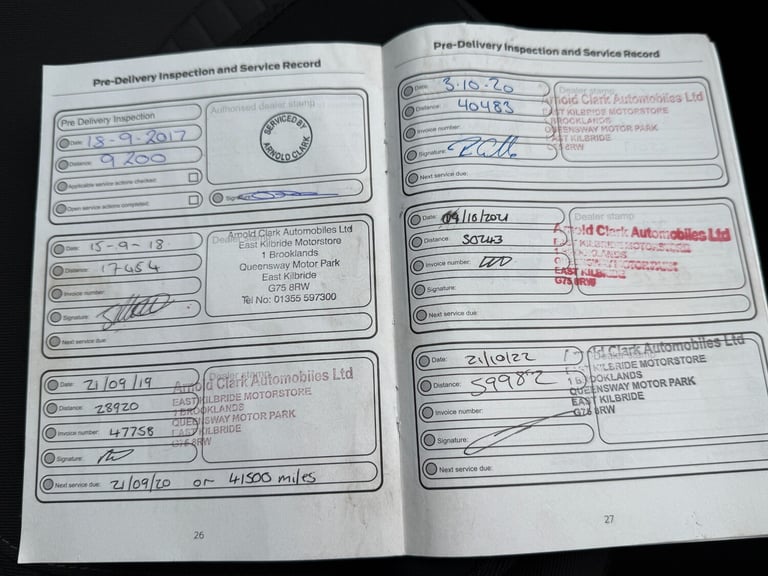 Pre-Delivery Inspection and Service Record
Pre Delivery Inspection
Date: 18-9-2017
Distance: 9200
Applicable service actions checked:
Open service actions completed:
Authorised dealer stamp
SERVICED BY
ARNOLD CLARK
Date: 15-9-18
Distance: 17454
Invoice number:
Signature:
Next service due:
Arnold Clark Automobiles Ltd
East Kilbride Motorstore
1 Brooklands
Queensway Motor Park
East Kilbride
G75 8RW
Tel No: 01355 597300
Date: 21/09/19
Distance: 28920
Invoice number: 47758
Signature:
Next service due: 21/09/20 or 41500 miles
Dealer stamp
Arnold Clark Automobiles Ltd
EAST KILBRIDE MOTORSTORE
1 BROOKLANDS
QUEENSWAY MOTOR PARK
EAST KILBRIDE
G75 8RW
26
Pre-Delivery Inspection and Service Record
Date: 3-10-20
Distance: 40483
Invoice number:
Signature:
Next service due:
Dealer stamp
Arnold Clark Automobiles Ltd
EAST KILBRIDE MOTORSTORE
BROOKLANDS
QUEENSWAY MOTOR PARK
EAST KILBRIDE
G75 8RW
Date: /10/2021
Distance
Invoice number:
Signature:
Next service due:
Dealer stamp
Arnold Clark Automobiles Ltd
KILBRIDE MOTORSTORE
QUEENSWAY MOTOR PARK
EAST KILBRIDE
G75 8RW
Date: 21/10/22
Distance:
Invoice number:
Signature:
Next service due:
Dealer stamp
Clark Automobiles Ltd
KILBRIDE MOTORSTORE
1 BROOKLANDS
QUEENSWAY MOTOR PARK
EAST KILBRIDE
G75 8RW
27